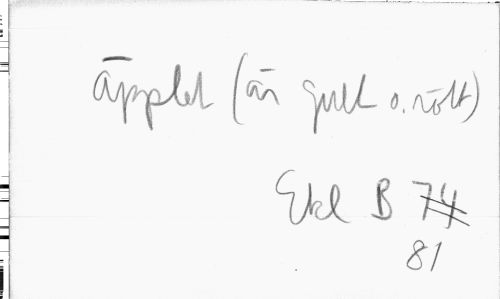 äpplet (är gult o. rött)
Ekl B 74
81